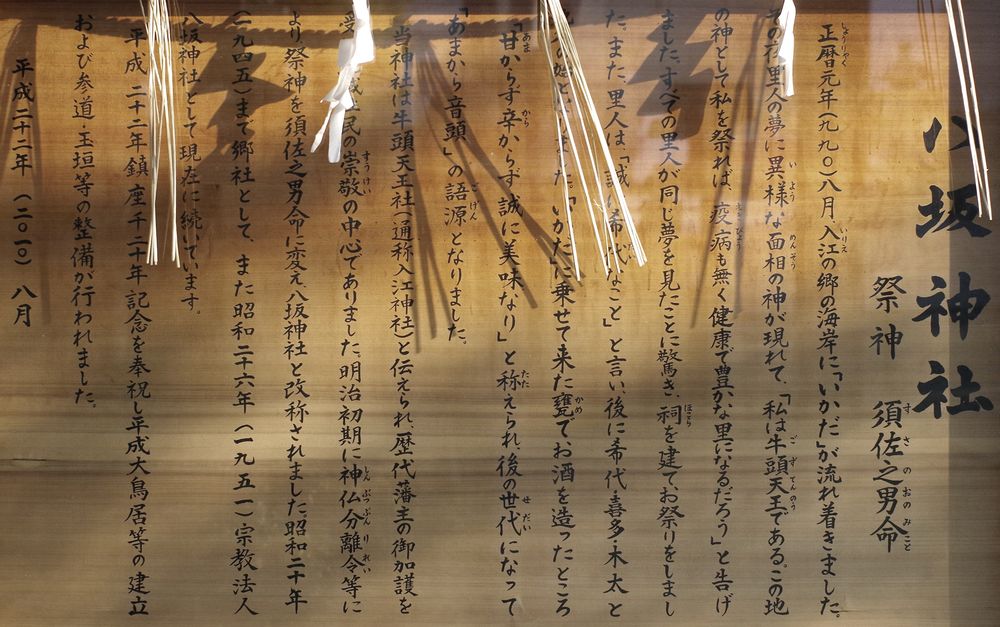 八坂神社
祭神 須佐之男命
正暦元年(九九〇)八月、入江の郷の海岸に「いかだ」が流れ着きました。
その夜里人の夢に異様な面相の神が現れて、「私は牛頭天王である。この地
の神として私を祭れば、疫病も無く健康で豊かな里になるだろう」と告げ
ました。すべての里人が同じ夢を見たことに驚き、祠を建てお祭りをしまし
た。また、里人は「誠に希代なこと」と言い、後に希代・喜多・木太と
「いかだ」に乗せて来た甕でお酒を造ったところ
「甘からず辛からず誠に美味なり」と称えられ、後の世代になって
「あまから音頭」の語源となりました。
当神社は牛頭天王社(通称入江神社)と伝えられ、歴代藩主の御加護を
民の崇敬の中心でありました。明治初期に神仏分離令等に
より祭神を須佐之男命に変え、八坂神社と改称されました。昭和二十年
(一九四五)まで郷社として、また昭和二十六年(一九五一)宗教法人
八坂神社として現在に続いています。
平成二十二年鎮座千二十年記念を奉祝し平成大鳥居等の建立
および参道・玉垣等の整備が行われました。
平成二十二年(二〇一〇)八月